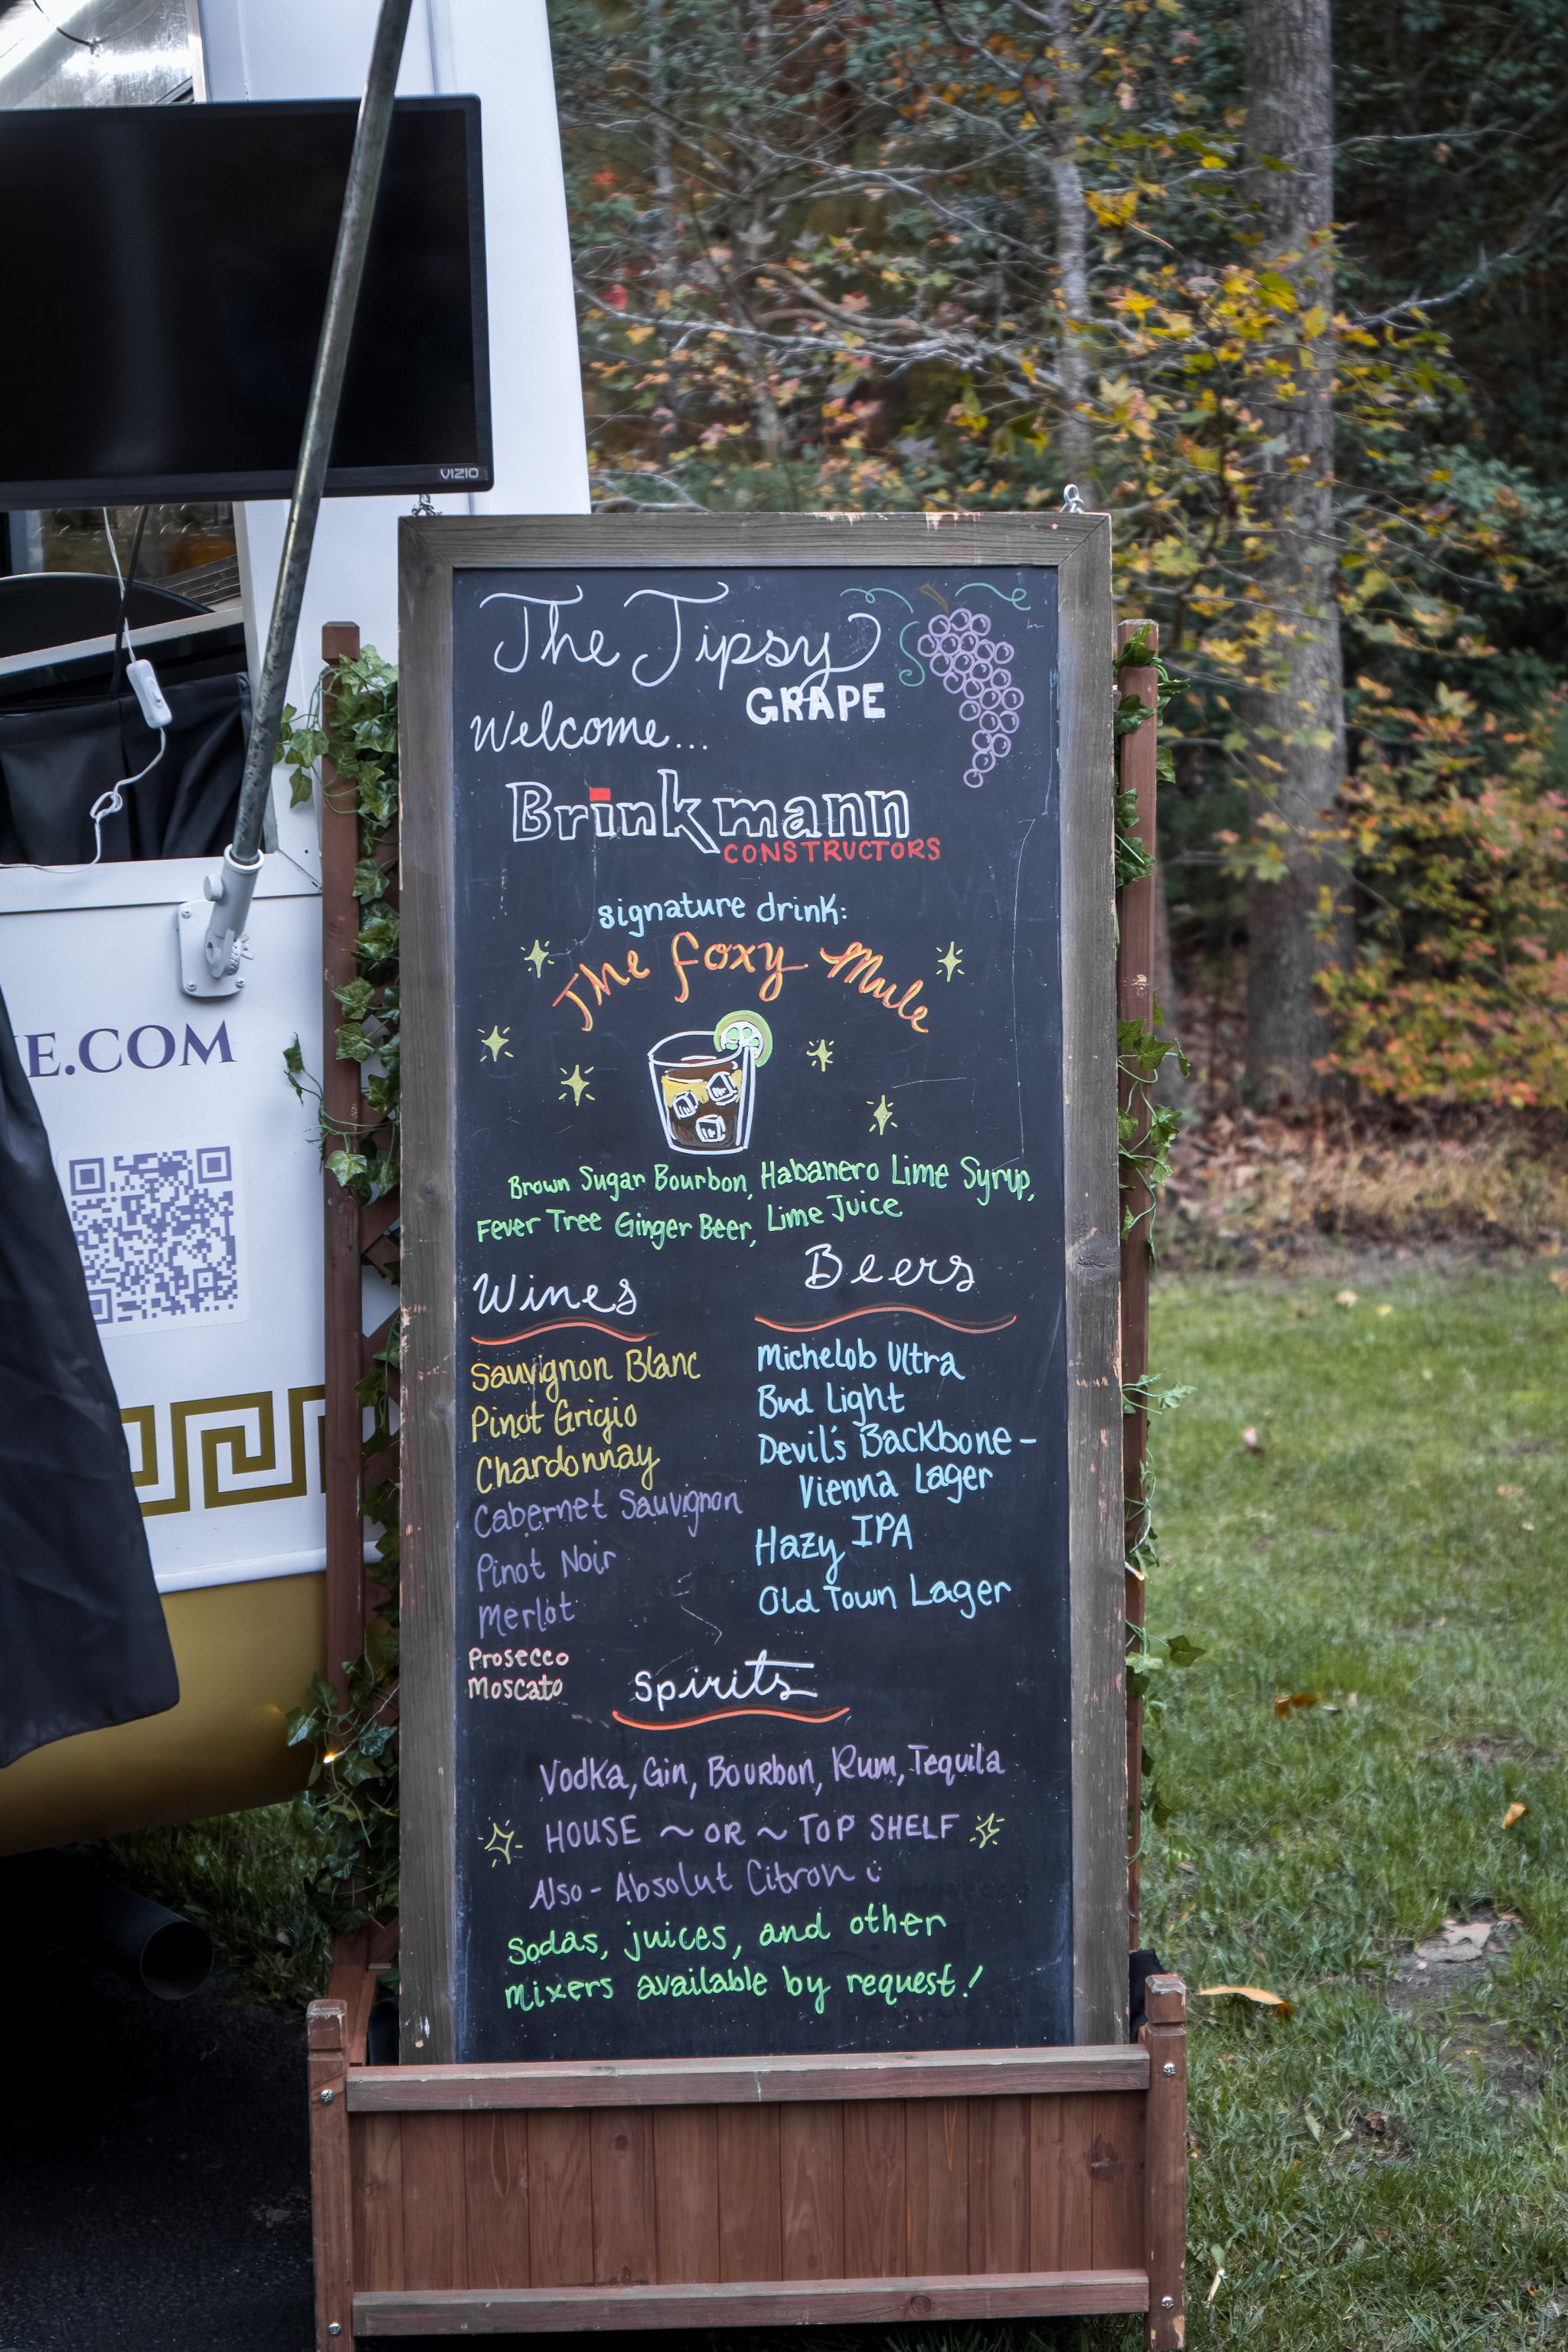 VIZIO
The Tipsy
GRAPE
Welcome...
Brinkmann
CONSTRUCTORS
signature drink:
The Foxy Mule
Brown Sugar Bourbon, Habanero Lime Syrup,
Fever Tree Ginger Beer, Lime Juice
Wines
Sauvignon Blanc
Pinot Grigio
Chardonnay
Cabernet Sauvignon
Pinot Noir
Merlot
Prosecco
Moscato
Beers
Michelob Ultra
Bud Light
Devil's Backbone -
Vienna Lager
Hazy IPA
Old Town Lager
Spirits
Vodka, Gin, Bourbon, Rum, Tequila
HOUSE ~ OR ~ TOP SHELF
Also - Absolut Citron
Sodas, juices, and other
mixers available by request!
E.COM